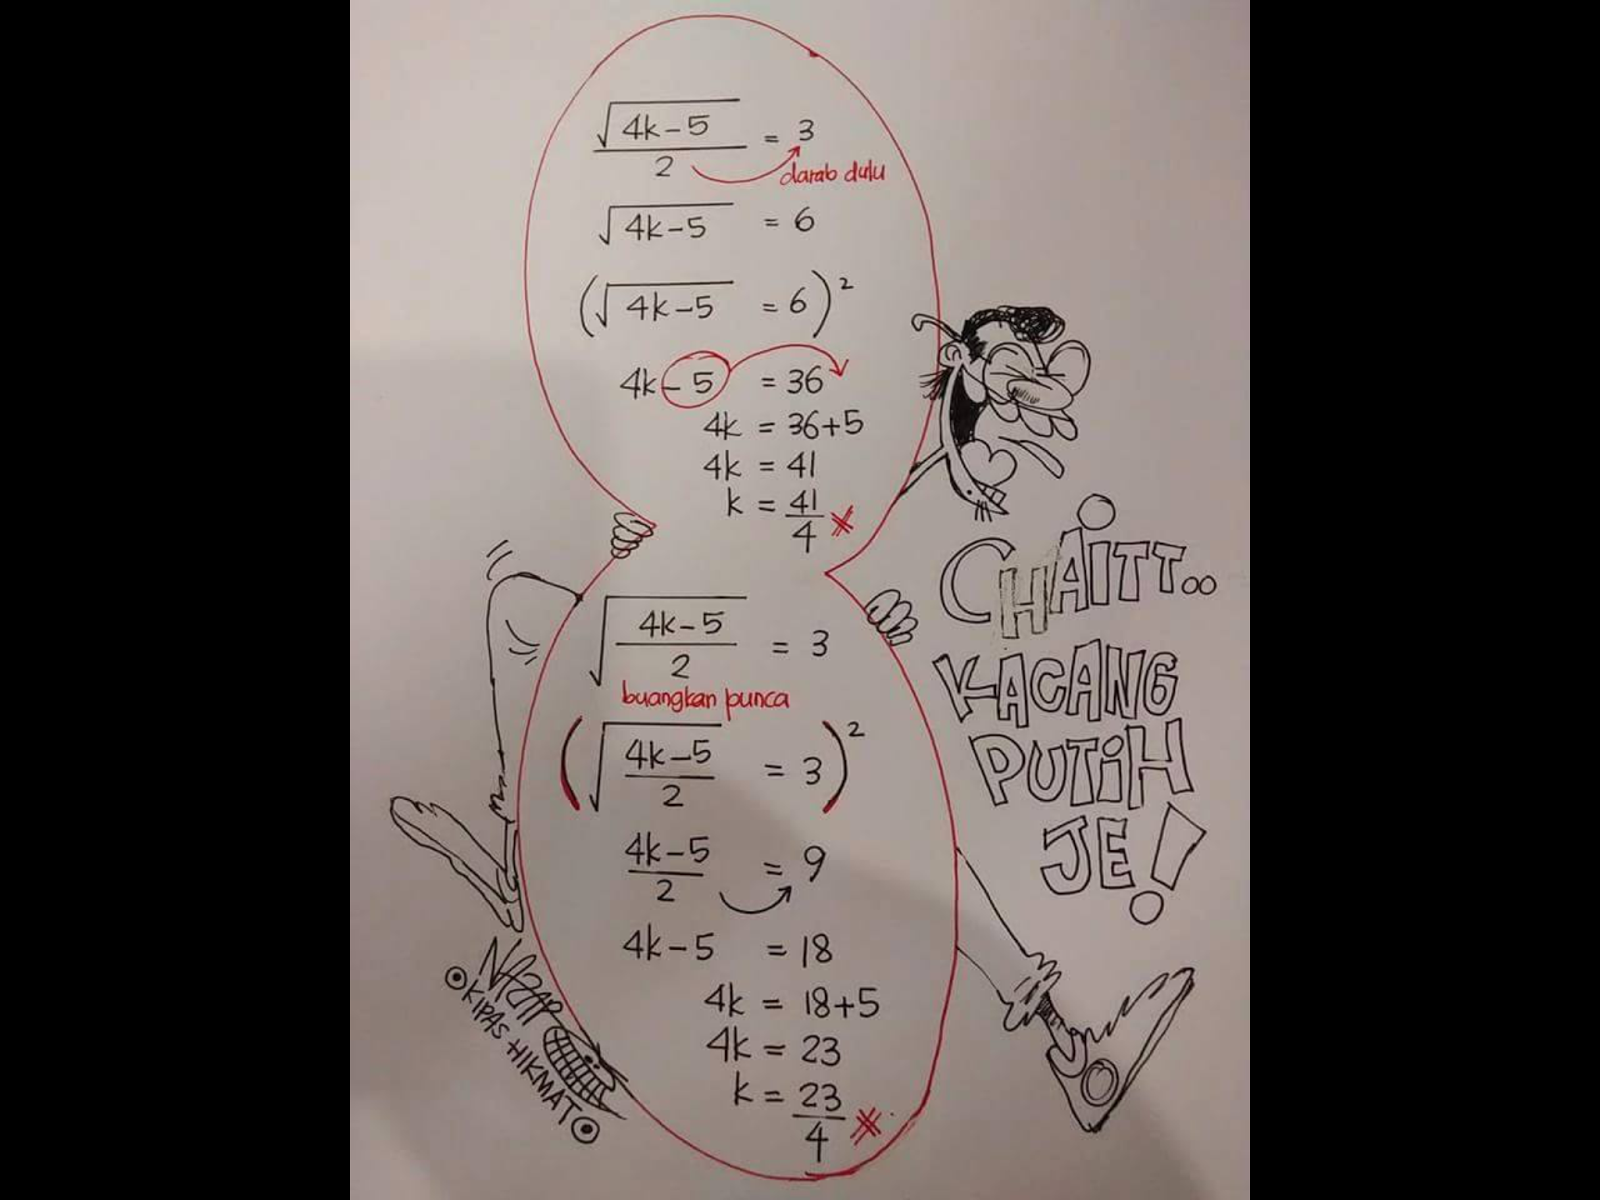 √(4k-5)/2 = 3
darab dulu
√(4k-5) = 6
(√(4k-5) = 6)²
4k-5 = 36
4k = 36+5
4k = 41
k = 41/4
√((4k-5)/2) = 3
buangkan punca
(√((4k-5)/2) = 3)²
(4k-5)/2 = 9
4k-5 = 18
4k = 18+5
4k = 23
k = 23/4
CHAITT..
KACANG
PUTIH
JE!
KIPAS HIKMAT